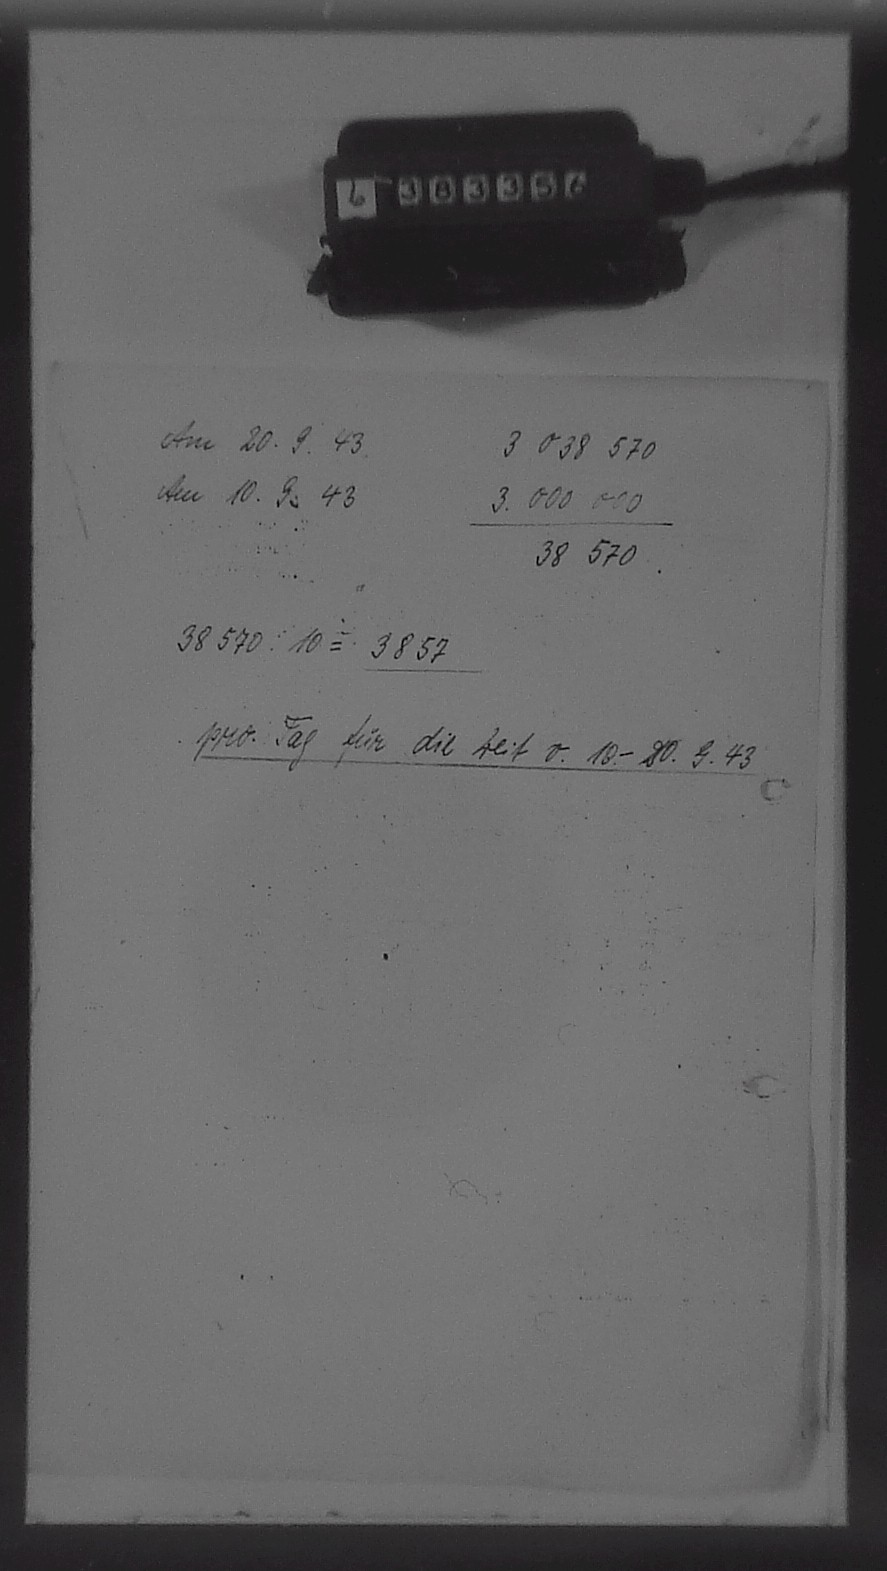 6 383356
Am 20. 9. 43 3 038 570
Am 10. 9. 43 3. 000 000
38 570
38 570 : 10 = 3857
pro. Tag für die Zeit v. 10.- 20. 9. 43